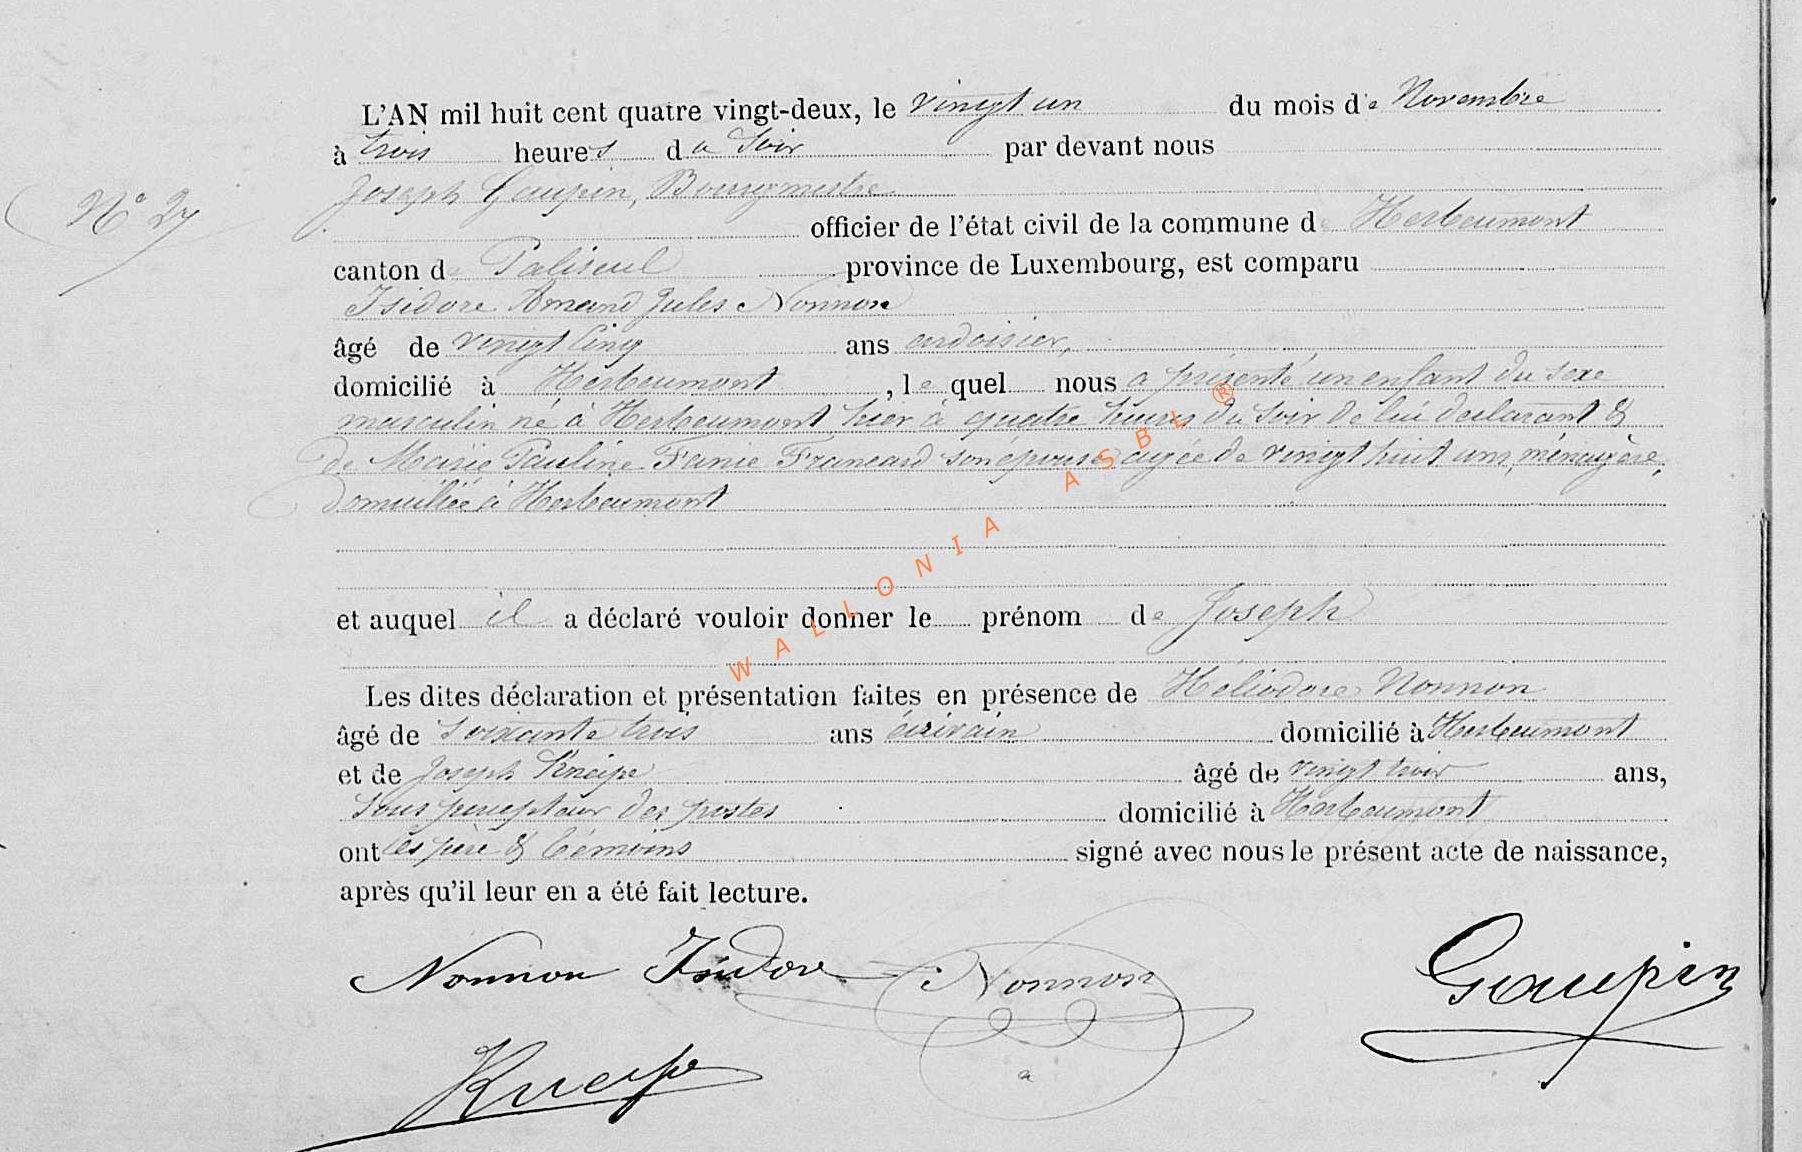 L'AN mil huit cent quatre vingt-deux, le vingt un du mois de Novembre
à trois heures du Soir par devant nous
Joseph Goupin, Bourgmestre
N° 27
officier de l'état civil de la commune de Herbeumont
canton de Paliseul province de Luxembourg, est comparu
Isidore Amand Jules Nonnon
âgé de vingt cinq ans ardoisier,
domicilié à Herbeumont, le quel nous a présenté un enfant du sexe
masculin né à Herbeumont hier à quatre heures du soir de lui déclarant &
de Marie Pauline Fanie Francard son épouse agée de vingt huit ans, ménagère,
domiciliée à Herbeumont
et auquel il a déclaré vouloir donner le prénom de Joseph
Les dites déclaration et présentation faites en présence de Héliodore Nonnon
âgé de soixante trois ans écrivain domicilié à Herbeumont
et de Joseph Kneipe âgé de vingt trois ans,
Sous percepteur des postes domicilié à Herbeumont
ont les père & témoins signé avec nous le présent acte de naissance,
après qu'il leur en a été fait lecture.
Nonnon Isidore Nonnon Goupin
Kneipe
WALLONIA ASBL ®